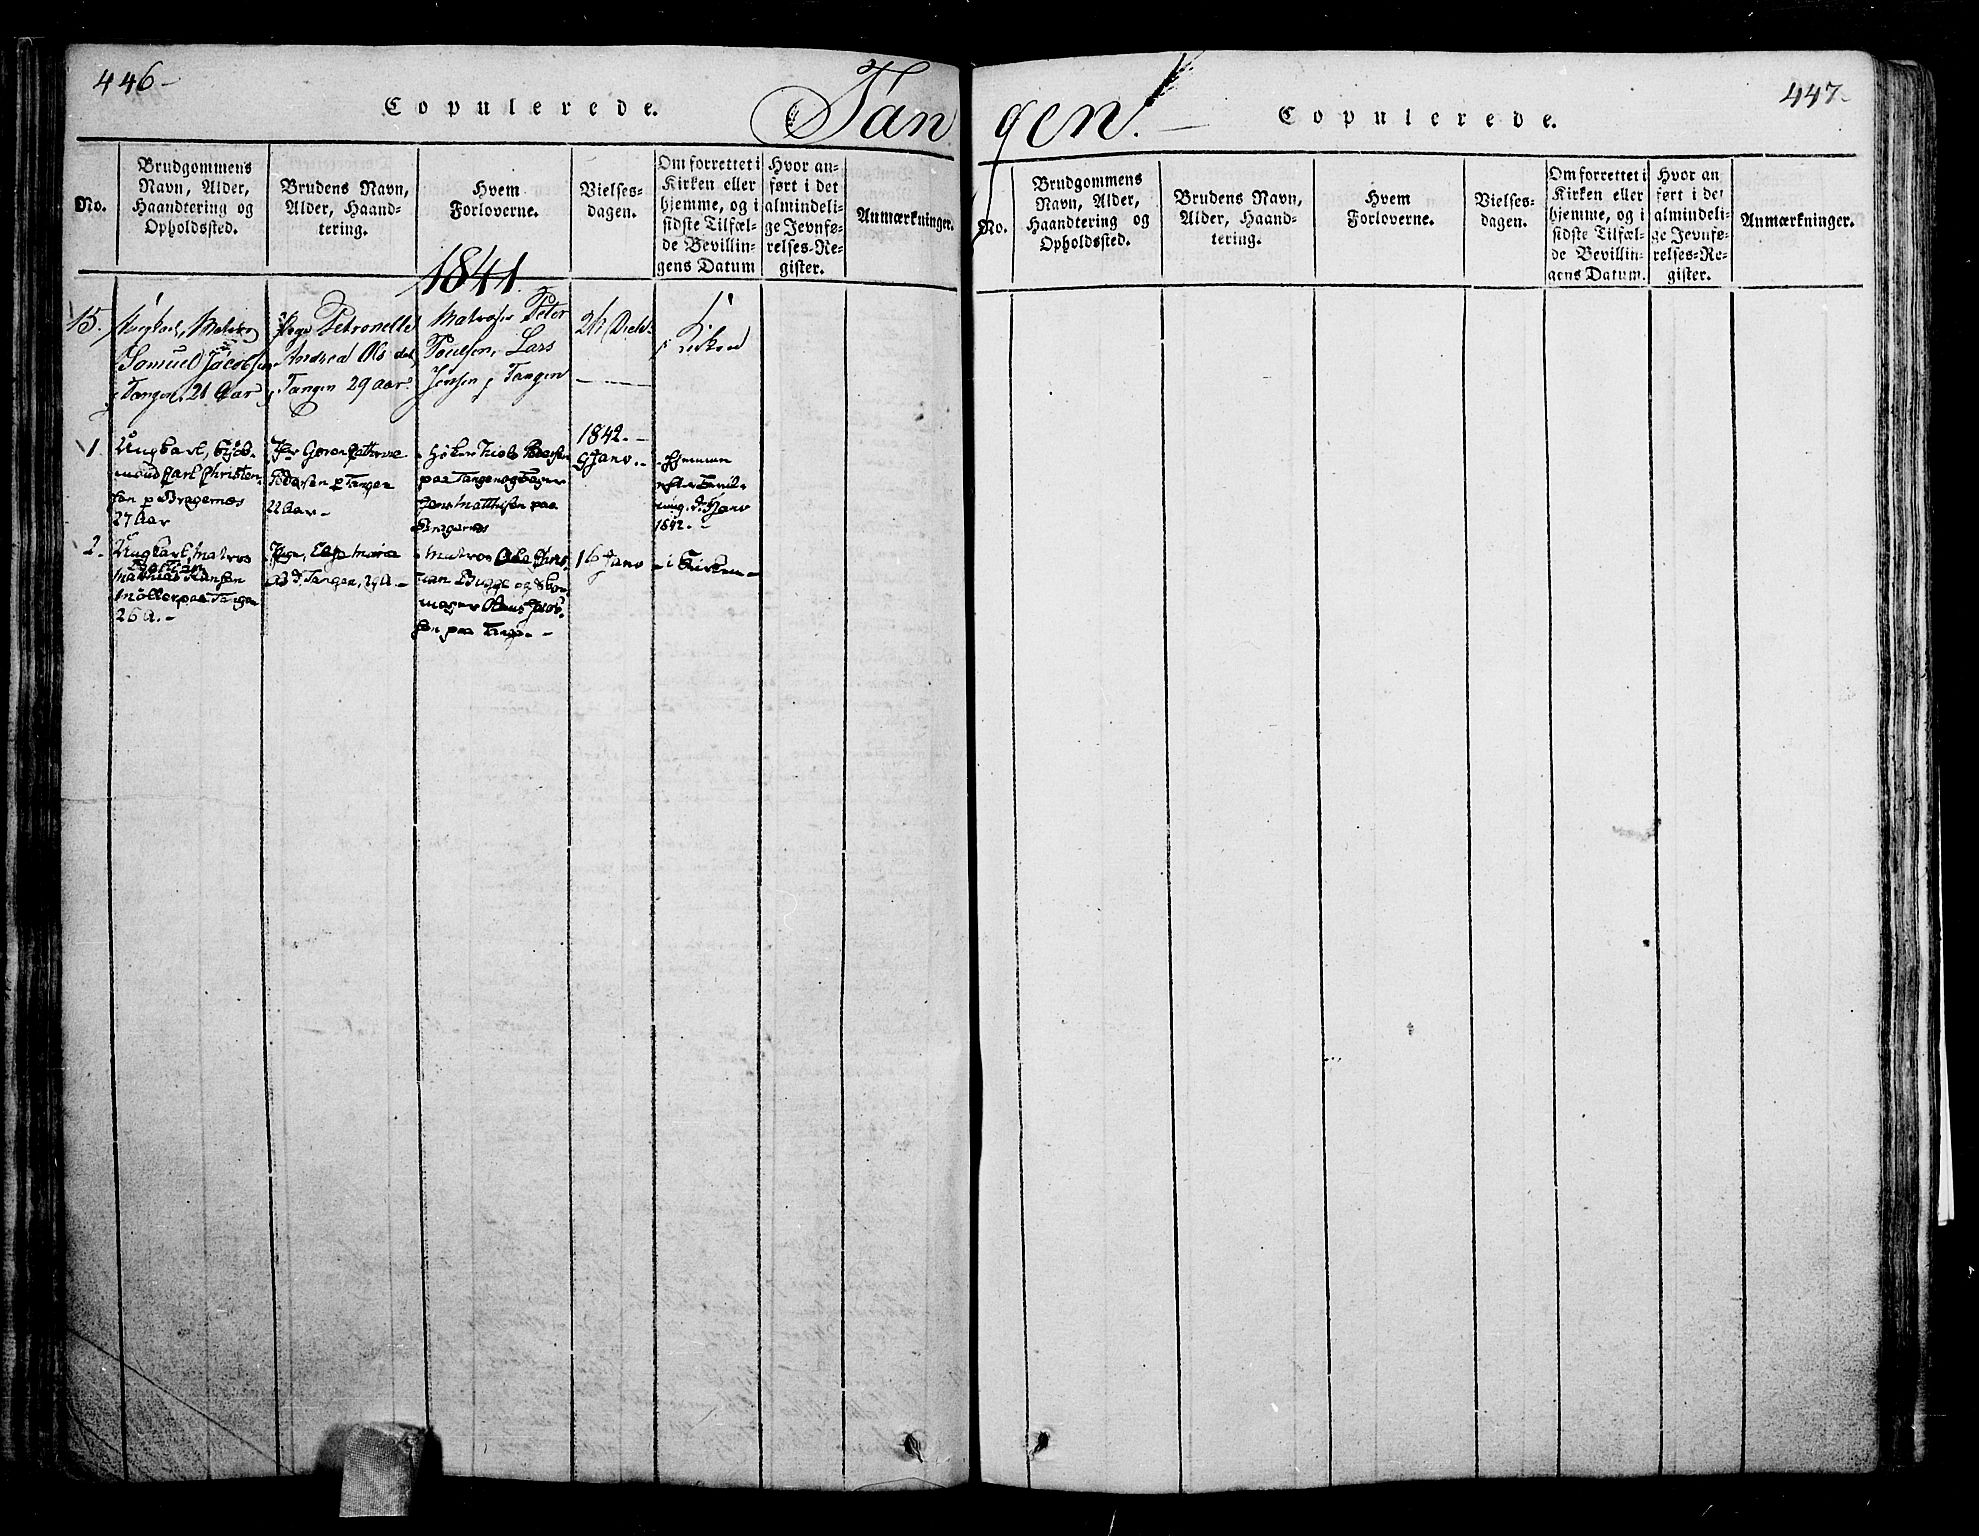 446-
Copulerede.
Tan
No.
Brudgommens
Navn, Alder,
Haandtering og
Opholdssted.
Brudens Navn,
Alder, Haand-
tering.
Hvem
Forloverne.
Vielses-
dagen.
Om forrettet i
Kirken eller
hjemme, og i
sidste Tilfæl-
de Bevillin-
gens Datum
Hvor an-
ført i det
almindeli-
ge Jevnfø-
relses-Re-
gister.
Anmærkninger.
1841.
15.
Ungkarl, Matros
Samuel Jacobsen
Tangen, 21 Aar
Pige Petronelle
Andrea Ols dat,
Tangen 29 aar
Matroser Peter
Poulsen, Lars
Jensen p Tangen
26 Decbr
Kirken
1.
Ungkarl,
mand Carl Christen-
sen p Bragernæs
27 Aar
Cathrine
Pedersen p Tangen
22 Aar-
Pedersen
paa Tangen og
Jens Matthisen paa
Bragernæs
1842.-
9 Janv.-
hjemme
efter Bevil-
ling d. Janv
1842.-
2.
Ungkarl, Matros
Mathias Hansen
Møller paa Tangen
26 A.-
Pige, Maria
Tangen,
Matros Ole Chris-
tian Bugge og Sko-
mager Jacob-
sen paa Tange.-
16 Janv
- i Kirken-
gen.-
447-
Copulerede.
No.
Brudgommens
Navn, Alder,
Haandtering og
Opholdssted.
Brudens Navn,
Alder, Haand-
tering.
Hvem
Forloverne.
Vielses-
dagen.
Om forrettet i
Kirken eller
hjemme, og i
sidste Tilfæl-
de Bevillin-
gens Datum.
Hvor an
ført i det
almindeli-
ge Jevnfø-
relses-Re-
gister.
Anmærkninger.